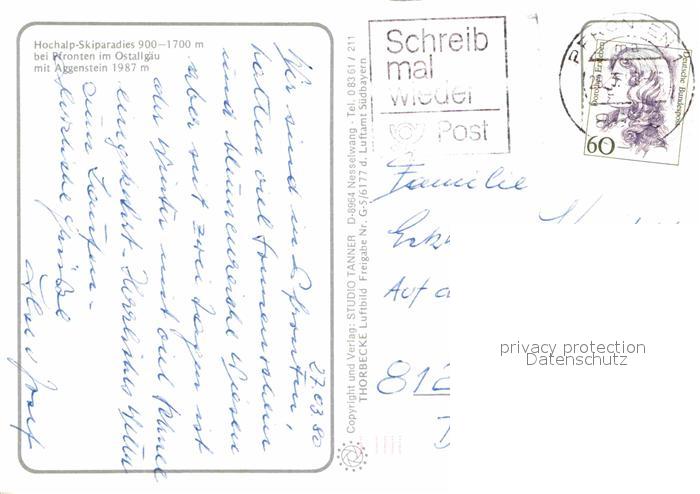 Hochalp-Skiparadies 900–1700 m
bei Pfronten im Ostallgäu
mit Aggenstein 1987 m
27.03.90
Wir sind in Pfronten,
hatten viel Sonnenschein
und blumenreiche Wiesen
aber seit zwei Tagen ist
der Winter mit viel Schnee
eingekehrt - Herrliches Wetter
zum Laufen -
Herzliche Grüße
Josef
Copyright und Verlag: STUDIO TANNER D-8964 Nesselwang · Tel. 0 83 61 / 211
THORBECKE Luftbild Freigabe Nr. G-5/6177 d. Luftamt Südbayern
Schreib
mal
wieder
Post
PFRONTEN
Dorothea Erxleben
Deutsche Bundespost
60
Familie
Auf d
812
privacy protection
Datenschutz